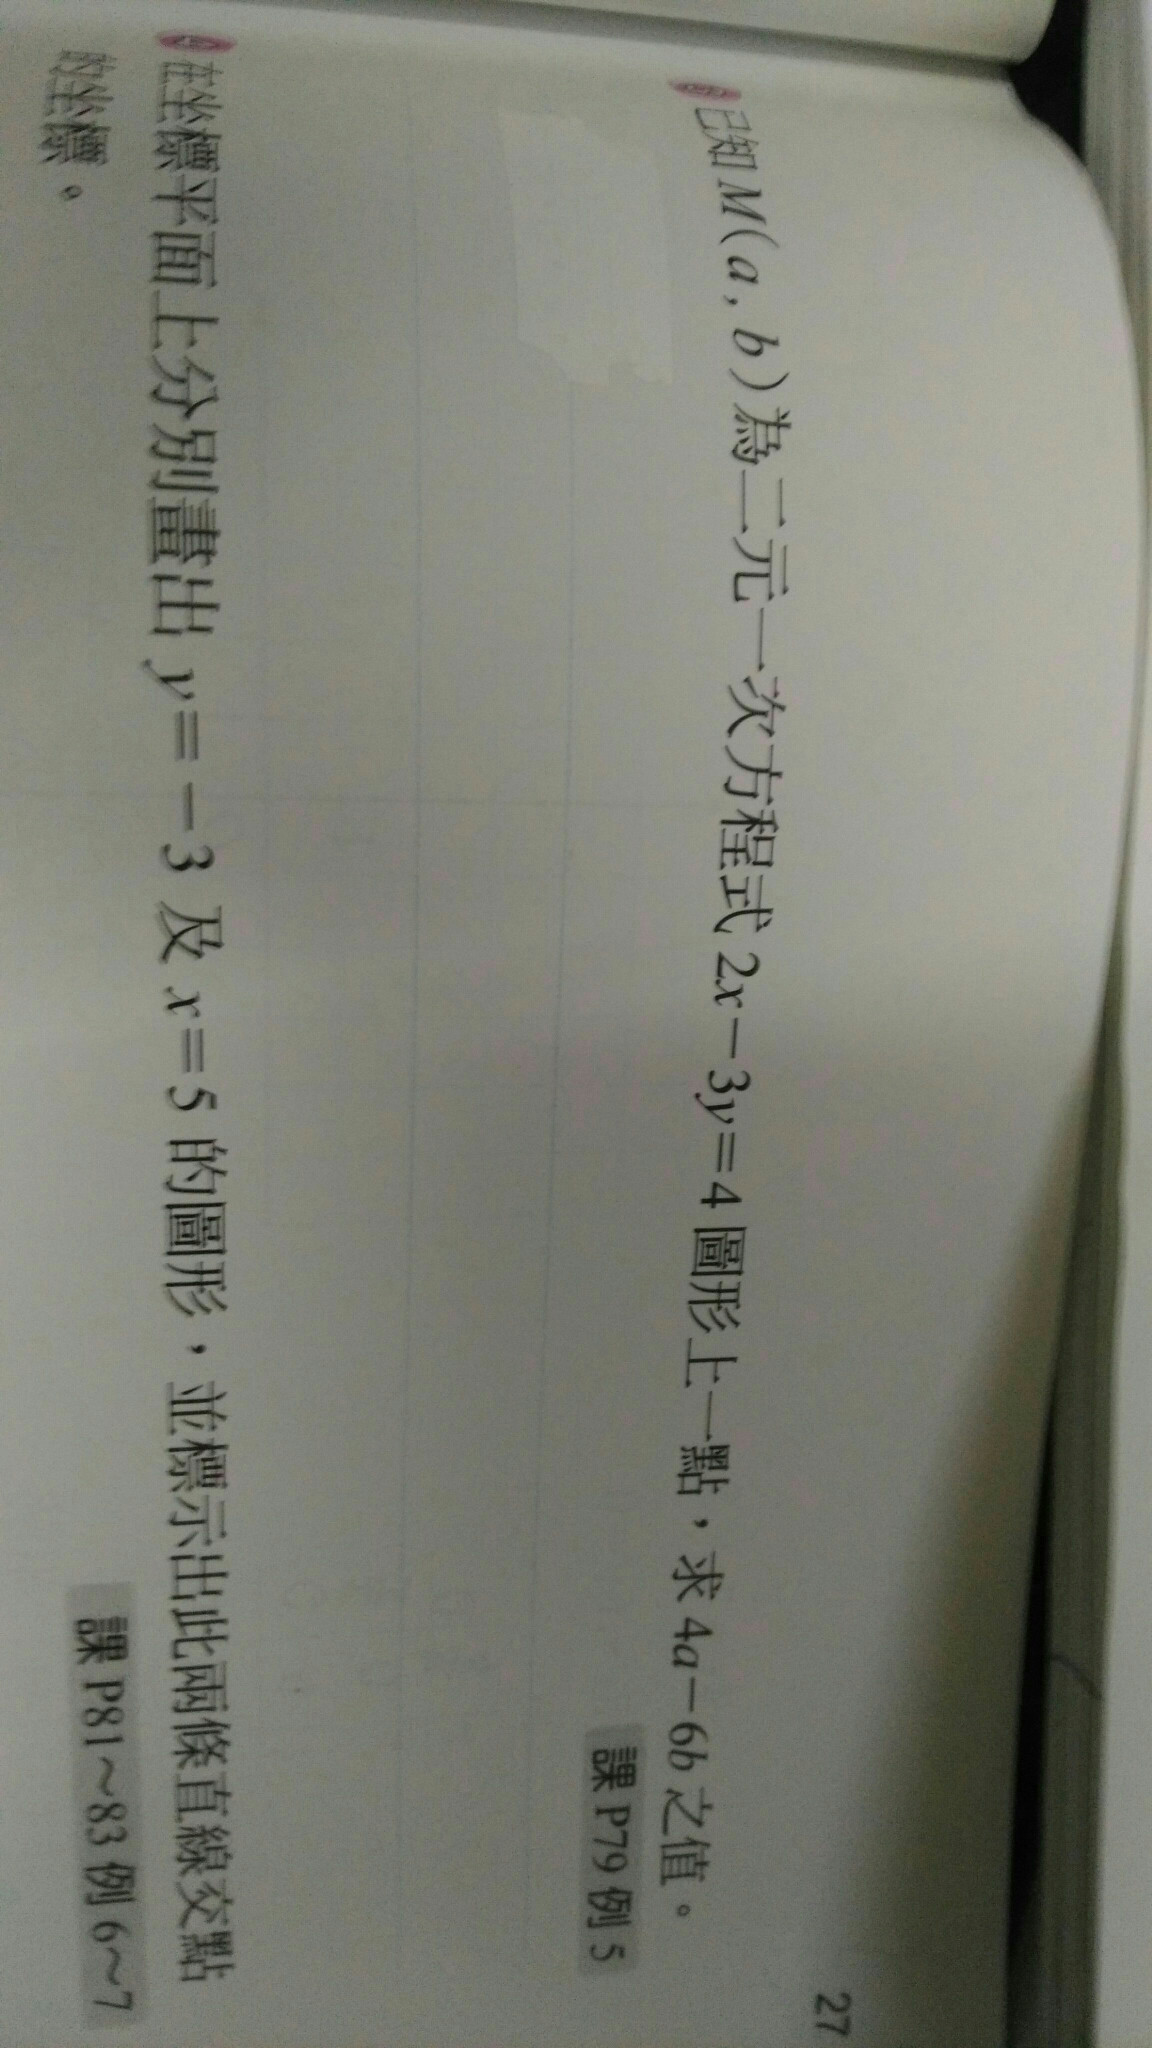 27
已知 M(a, b)為二元一次方程式 2x－3y＝4 圖形上一點，求 4a－6b 之值。
課 P79 例 5
在坐標平面上分別畫出 y＝－3 及 x＝5 的圖形，並標示出此兩條直線交點
的坐標。
課 P81～83 例 6～7